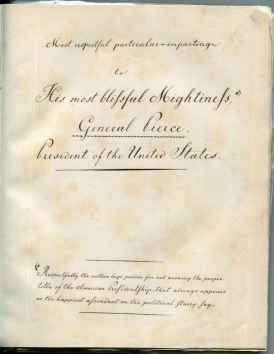 Most respectful particular-impartings
to
His most blissful Mightiness,*)
General Pierce.
President of the United States.
Respectfully the author begs pardon for not knowing the proper
title of the American Presidentship, that always appears
as the happiest on the political